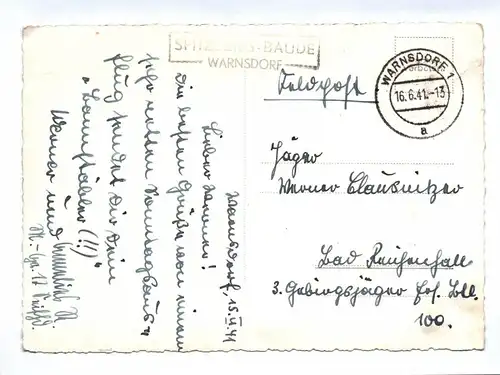 SPITZBERG-BAUDE
WARNSDORF
WARNSDORF 1
16.6.41.-13
a
Feldpost
Jäger
Werner Clausnitzer
Bad Reichenhall
3. Gebirgsjäger Ers. Btl.
100.
Warnsdorf, 15.VI.41
Lieber Werner!
Die besten Grüße von einem
sehr netten Sonntagsaus-
flug sendet Dir Dein
Werner und